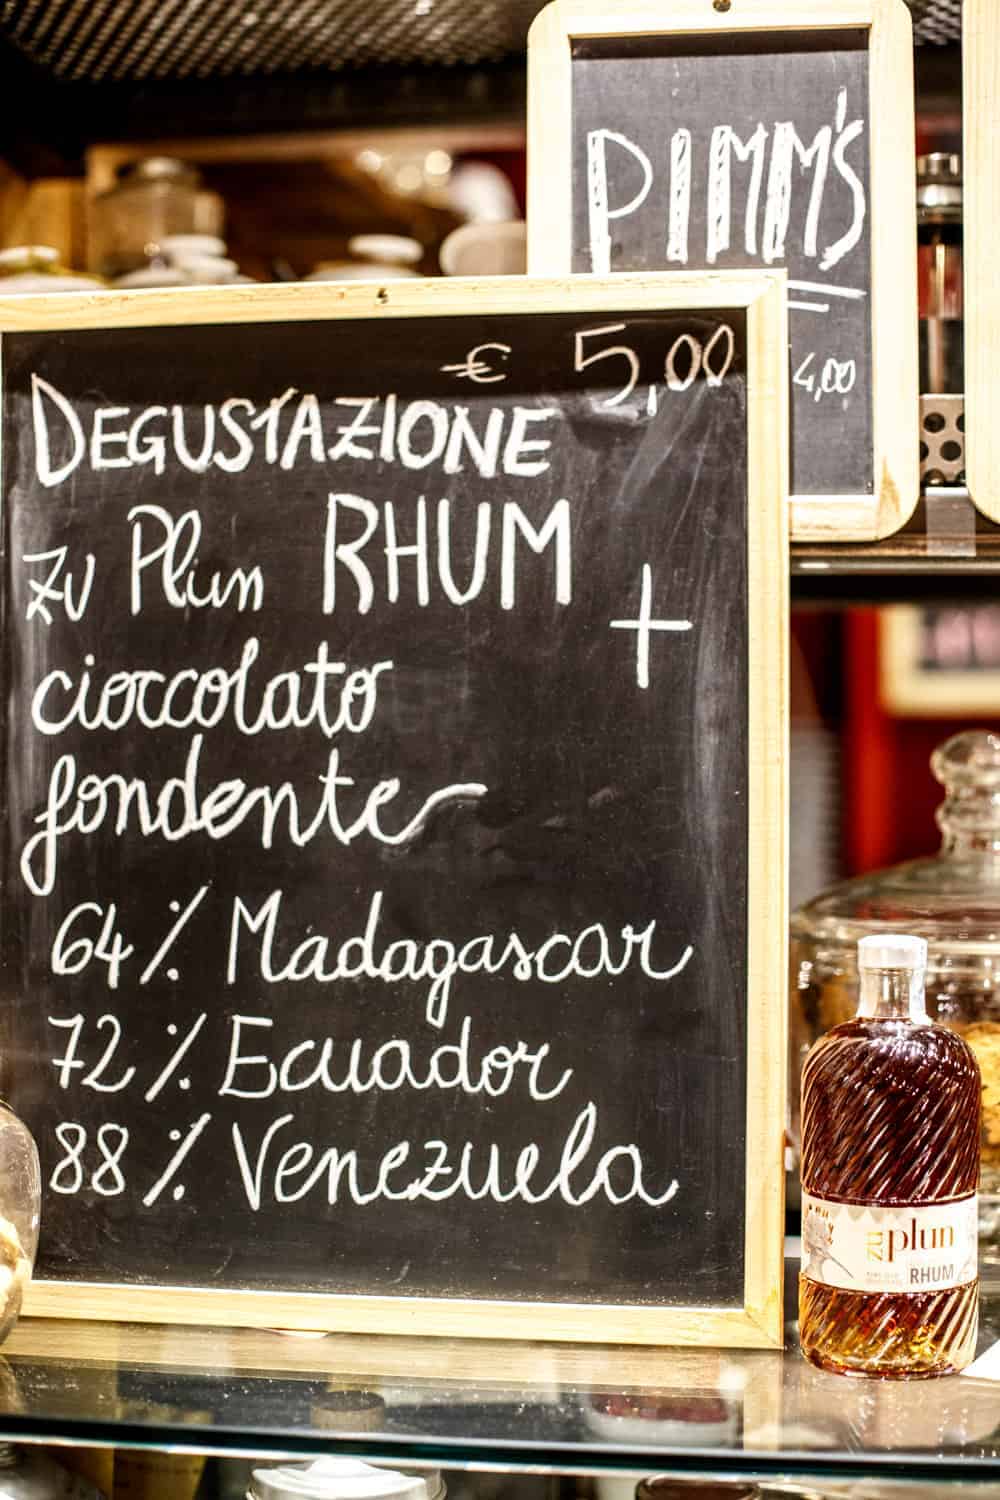 PIMM'S
4,00
€ 5,00
DEGUSTAZIONE
ZU Plun RHUM
+
cioccolato
fondente
64% Madagascar
72% Ecuador
88% Venezuela
zu plun
RHUM